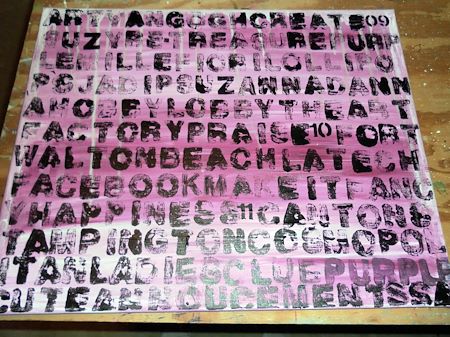 ARTVANGOGHCREATE09
SUZYRSTREASUREPURP
LEMILLEFIORILOLLIPO
PSJADIPSUZANNADANN
AHOBBYLOBBYTHEART
FACTORYPRAISE10FORT
WALTONBEACHLATECH
FACEBOOKMAKEITFANC
YHAPPINESS11CANTON&
TAMPINGTONCOSHOPOL
ITANLADIESCLUEPURPLE
CUTEANNOUCEMENTSSA